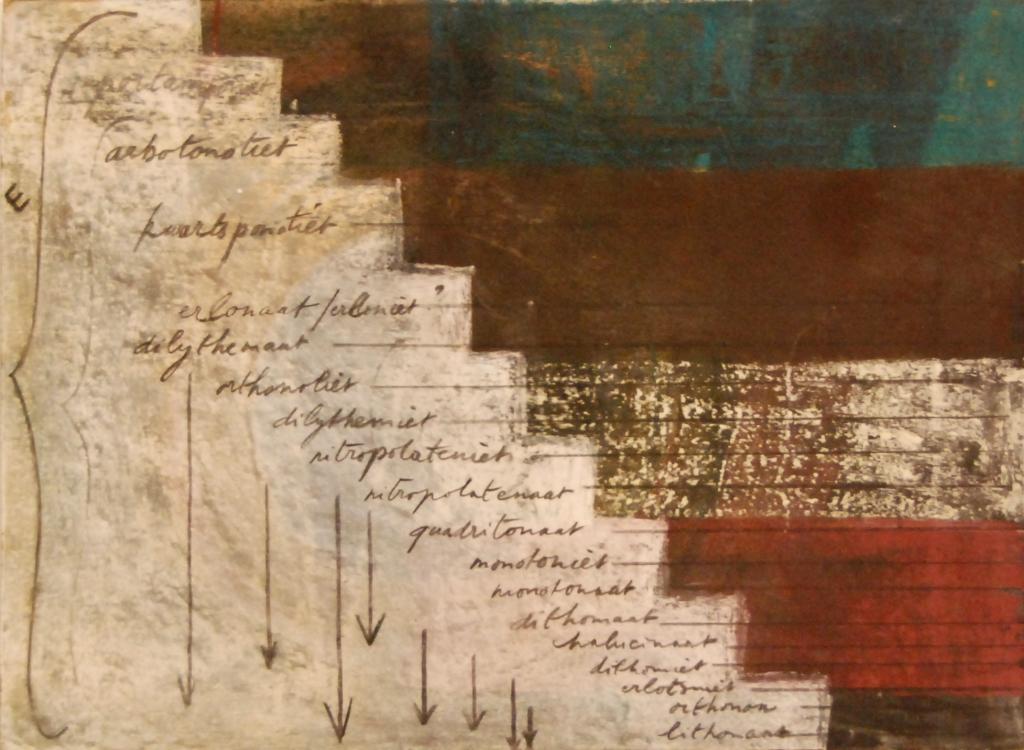 E
arbotonotiet
kwartsponotiet
erlonaat/erloniet
dilythemaat
orthonoliet
dilythemiet
nitropolateniet
nitropolatenaat
quadritonaat
monotoniet
monotonaat
dithomaat
halucinaat
dithomiet
erlotomiet
orthonon
lithonaat